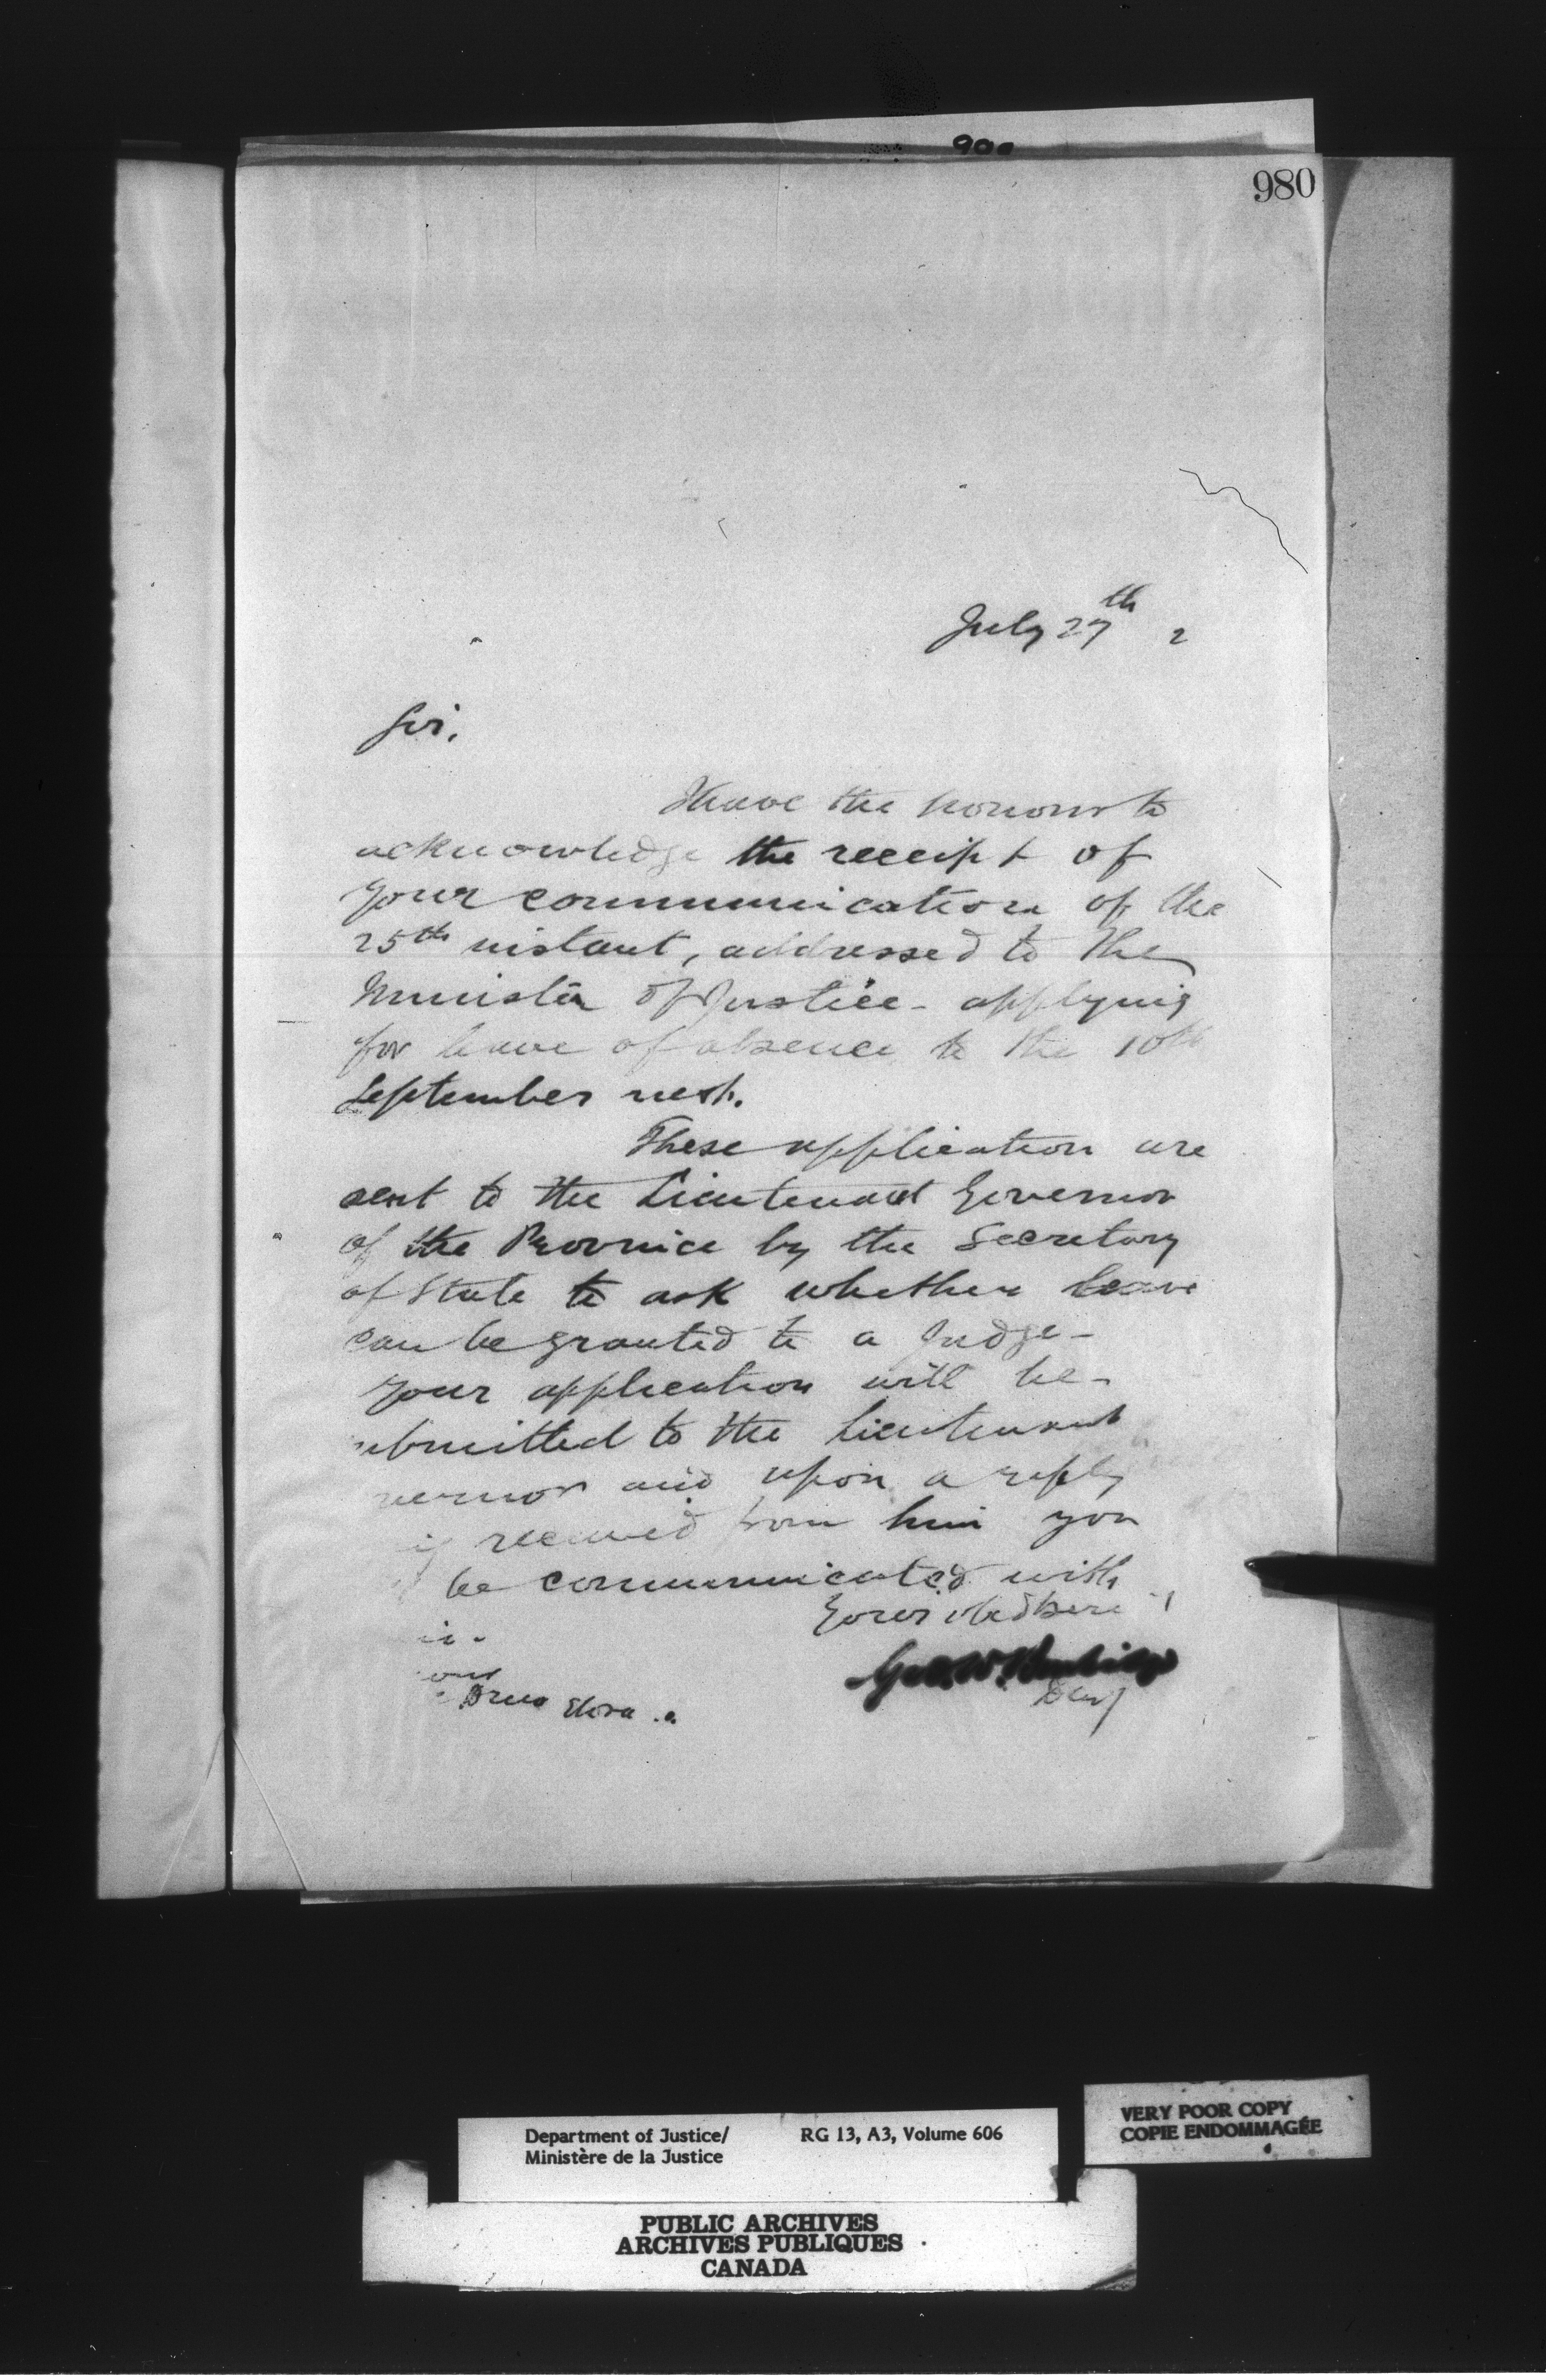 980
July 27th 2
Sir,
I have the honour to
acknowledge the receipt of
your communication of the
25th instant, addressed to the
Minister of Justice - applying
for leave of absence to the 10th
September next.
These application are
sent to the Lieutenant Governor
of the Province by the Secretary
of State to ask whether leave
can be granted to a Judge -
Your application will be -
ubmitted to the Lieutenant
vernor and upon a reply
received from him you
be communicated with
Geo. W. Burbidge
Drew Elora
Department of Justice/ RG 13, A3, Volume 606
Ministère de la Justice
VERY POOR COPY
COPIE ENDOMMAGÉE
PUBLIC ARCHIVES
ARCHIVES PUBLIQUES
CANADA